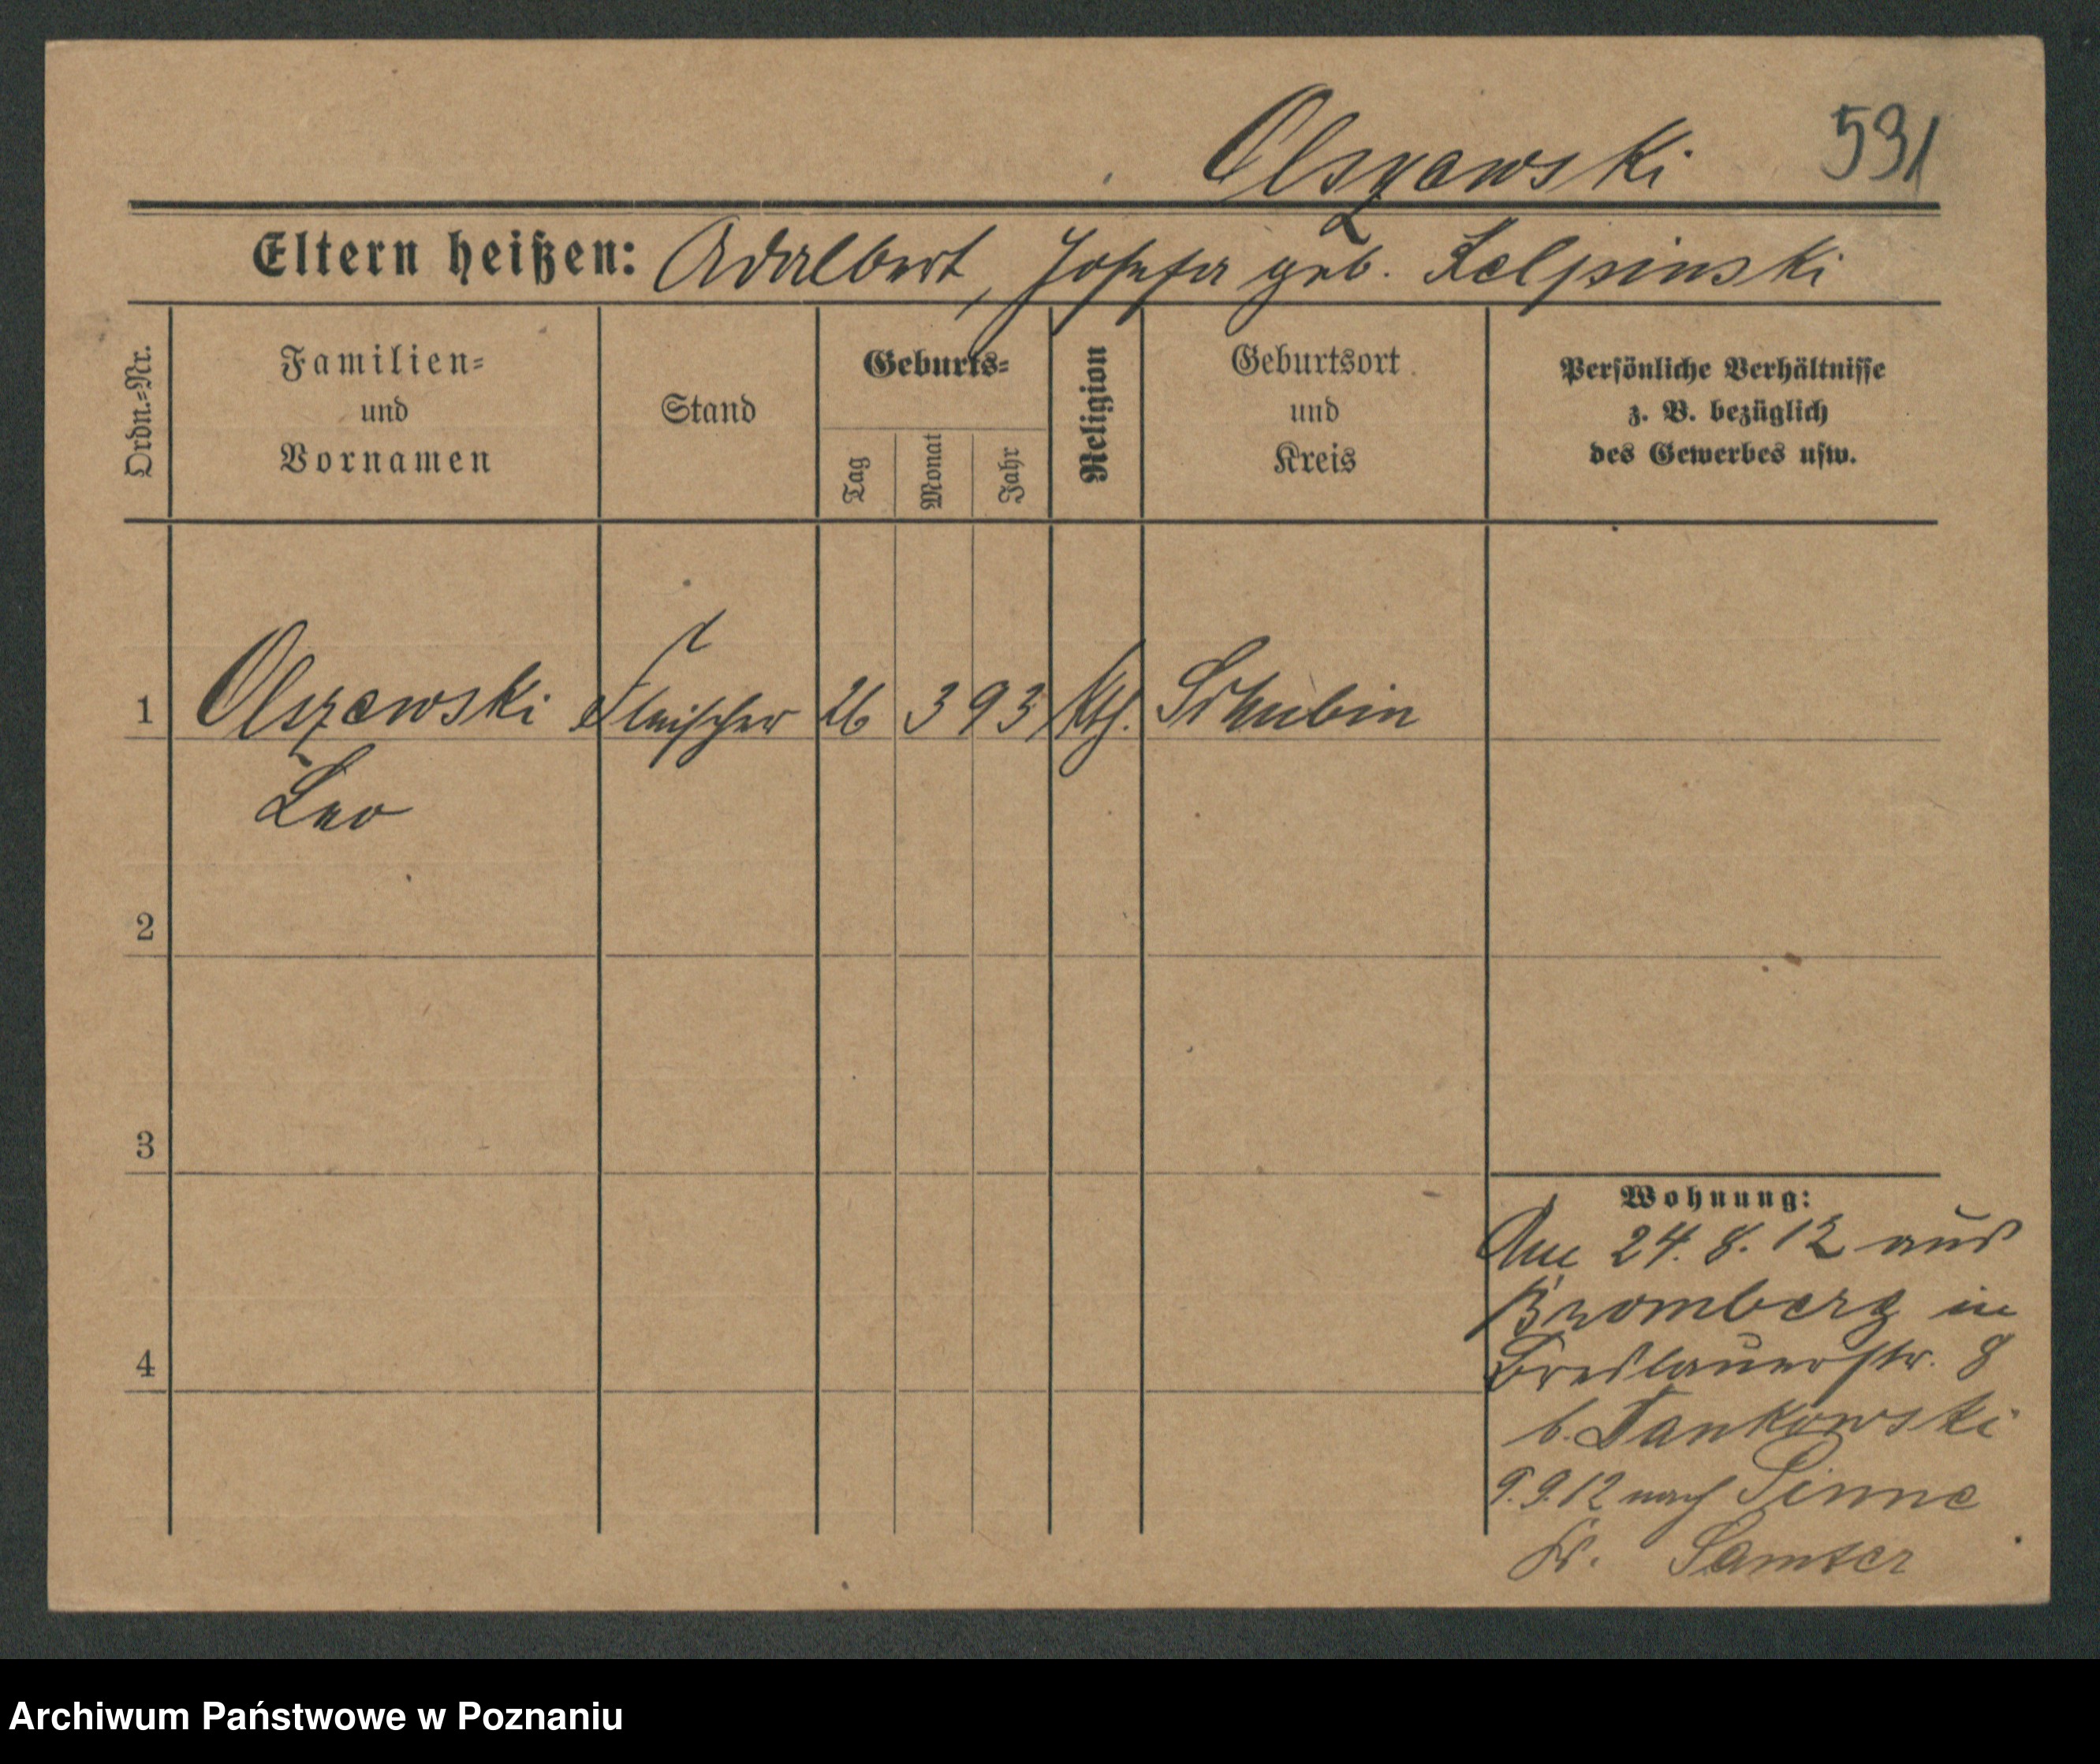 Olszewski 531
Eltern heißen: Adalbert, Josefa geb. Kelpinski
Ordn.-Nr.
Familien=
und
Vornamen
Stand
Geburts=
Tag
Monat
Jahr
Religion
Geburtsort
und
Kreis
Persönliche Verhältnisse
z. B. bezüglich
des Gewerbes usw.
1 Olszewski Fleischer 26 3 93 kth. Schubin
Leo
2
3
4
Wohnung:
Am 24. 8. 12 aus
Bromberg in
Breslauerstr. 8
b. Jankowski
9. 9. 12 nach Pinne
Kr. Samter
Archiwum Państwowe w Poznaniu